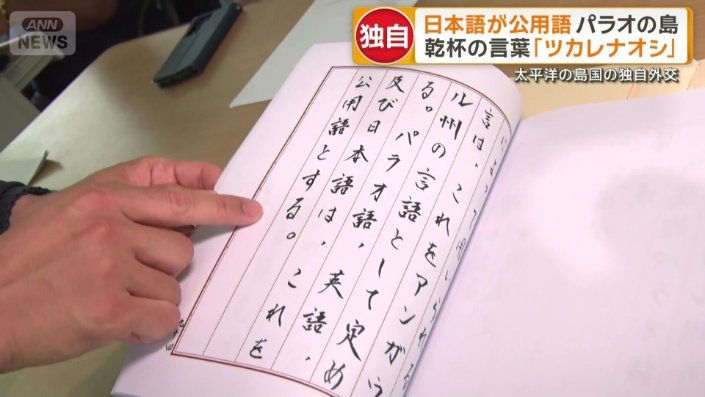 ANN
NEWS
独自
日本語が公用語 パラオの島
乾杯の言葉「ツカレナオシ」
太平洋の島国の独自外交
って用いられる
言は、これをアンガウ
ル州の言語として定め
る。パラオ語、英語、
及び日本語は、これを
公用語とする。